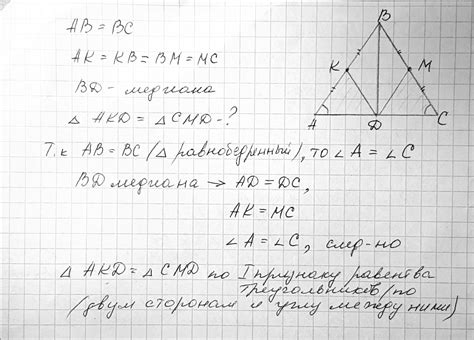 AB = BC
AK = KB = BM = MC
BD - медиана
△ AKD = △ CMD - ?
B
K
M
A
D
C
Т.к AB = BC (△ равнобедренный), то ∠A = ∠C
BD медиана → AD = DC,
AK = MC
∠A = ∠C, след-но
△ AKD = △ CMD по I признаку равенства
треугольников (по
(двум сторонам и углу между ними)